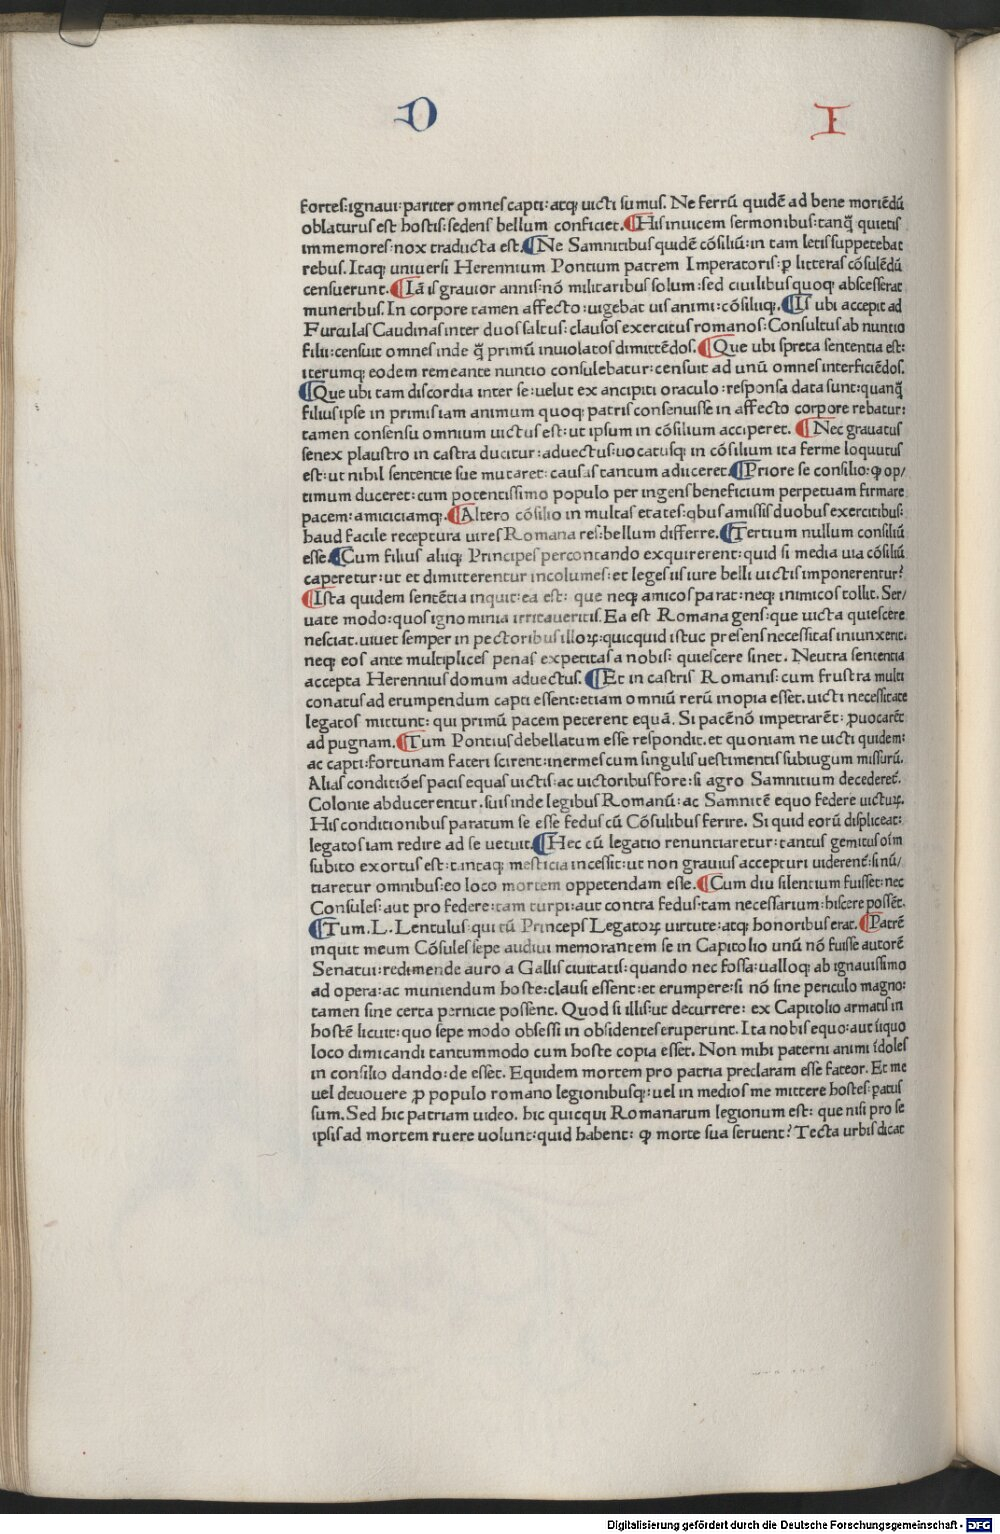 D I
fortes:ignaui:pariter omnes capti:atqꝫ uicti sumus. Ne ferrū quidē ad bene moriēdū
oblaturus est hostis:sedens bellum conficiet. ¶His inuicem sermonibus:tanꝙ̃ quietis
immemores:nox traducta est. ¶Ne Samnitibus quidē cōsiliū:in tam letis suppetebat
rebus. Itaqꝫ uniuersi Herennium Pontium patrem Imperatoris:ꝑ litteras cōsulēdū
censuerunt. ¶Iā is grauior annis:nō militaribus solum:sed ciuilibus quoqꝫ abscesserat
muneribus. In corpore tamen affecto:uigebat uis animi:cōsiliiqꝫ. ¶Is ubi accepit ad
Furculas Caudinas inter duos saltus:clausos exercitus romanos:Consultus ab nuntio
filii:censuit omnes inde ꝙ̃ primū inuiolatos dimittēdos. ¶Que ubi spreta sententia est:
iterumqꝫ eodem remeante nuntio consulebatur:censuit ad unū omnes interficiēdos.
¶Que ubi tam discordia inter se:uelut ex ancipiti oraculo:responsa data sunt:quanꝙ̃
filius ipse in primis iam animum quoqꝫ patris consenuisse in affecto corpore rebatur:
tamen consensu omnium uictus est:ut ipsum in cōsilium acciperet. ¶Nec grauatus
senex plaustro in castra ducitur:aduectus:uocatusqꝫ in cōsilium ita ferme loquutus
est:ut nihil sententie sue mutaret:causas tantum adiiceret. ¶Priore se consilio:ꝙ op/
timum duceret:cum potentissimo populo per ingens beneficium perpetuam firmare
pacem:amiciciamqꝫ. ¶Altero cōsilio in multas etates:qbus amissis duobus exercitibus:
haud facile receptura uires Romana res:bellum differre. ¶Tertium nullum consiliū
esse. ¶Cum filius aliiqꝫ Principes percontando exquirerent:quid si media uia cōsiliū
caperetur:ut et dimitterentur incolumes:et leges iis iure belli uictis imponerentur?
¶Ista quidem sentētia inquit:ea est: que neqꝫ amicos parat:neqꝫ inimicos tollit. Ser/
uate modo:quos ignominia irritaueritis. Ea est Romana gens:que uicta quiescere
nesciat. uiuet semper in pectoribus illoꝝ:quicquid istuc presens necessitas iniunxerit.
neqꝫ eos ante multiplices penas expetitas a nobis: quiescere sinet. Neutra sententia
accepta Herennius domum aduectus. ¶Et in castris Romanis:cum frustra multi
conatus ad erumpendum capti essent:etiam omniū rerū inopia esset. uicti necessitate
legatos mittunt: qui primū pacem peterent equā. Si pacē nō impetrarēt:ꝓuocarēt
ad pugnam. ¶Tum Pontius debellatum esse respondit. et quoniam ne uicti quidem:
ac capti:fortunam fateri scirent:inermes cum singulis uestimentis sub iugum missurū.
Alias conditiōes pacis equas uictis:ac uictoribus fore:si agro Samnitium decederet̃.
Colonie abducerentur. suis inde legibus Romanū:ac Samnitē equo federe uicturꝝ.
His conditionibus paratum se esse fedus cū Cōsulibus ferire. Si quid eorū displiceat:
legatos iam redire ad se uetuit. ¶Hec cū legatio renuntiaretur:tantus gemitus oīm
subito exortus est:tantaqꝫ mesticia incessit:ut non grauius accepturi uiderent̃:si nū/
tiaretur omnibus:eo loco mortem oppetendam esse. ¶Cum diu silentium fuisset:nec
Consules:aut pro federe:tam turpi:aut contra fedus:tam necessarium:hiscere possēt.
¶Tum. L. Lentulus:qui tū Princeps Legatoꝝ uirtute:atqꝫ honoribus erat. ¶Patrē
inquit meum Cōsules sepe audiui memorantem se in Capitolio unū nō fuisse autorē
Senatui:redimende auro a Gallis ciuitatis:quando nec fossa:ualloqꝫ ab ignauissimo
ad opera:ac muniendum hoste:clausi essent:et erumpere:si nō sine periculo magno:
tamen sine certa pernicie possent. Quod si illis:ut decurrere: ex Capitolio armatis in
hostē licuit:quo sepe modo obsessi in obsidentes eruperunt. Ita nobis equo:aut iiquo
loco dimicandi tantummodo cum hoste copia esset. Non mihi paterni animi īdoles
in consilio dando:de esset. Equidem mortem pro patria preclaram esse fateor. Et me
uel deuouere ꝓ populo romano legionibusqꝫ:uel in medios me mittere hostes:patus
sum. Sed hic patriam uideo. hic quicqui Romanarum legionum est: que nisi pro se
ipsis ad mortem ruere uolunt:quid habent: ꝙ morte sua seruent? Tecta urbis dicat
Digitalisierung gefördert durch die Deutsche Forschungsgemeinschaft - DFG